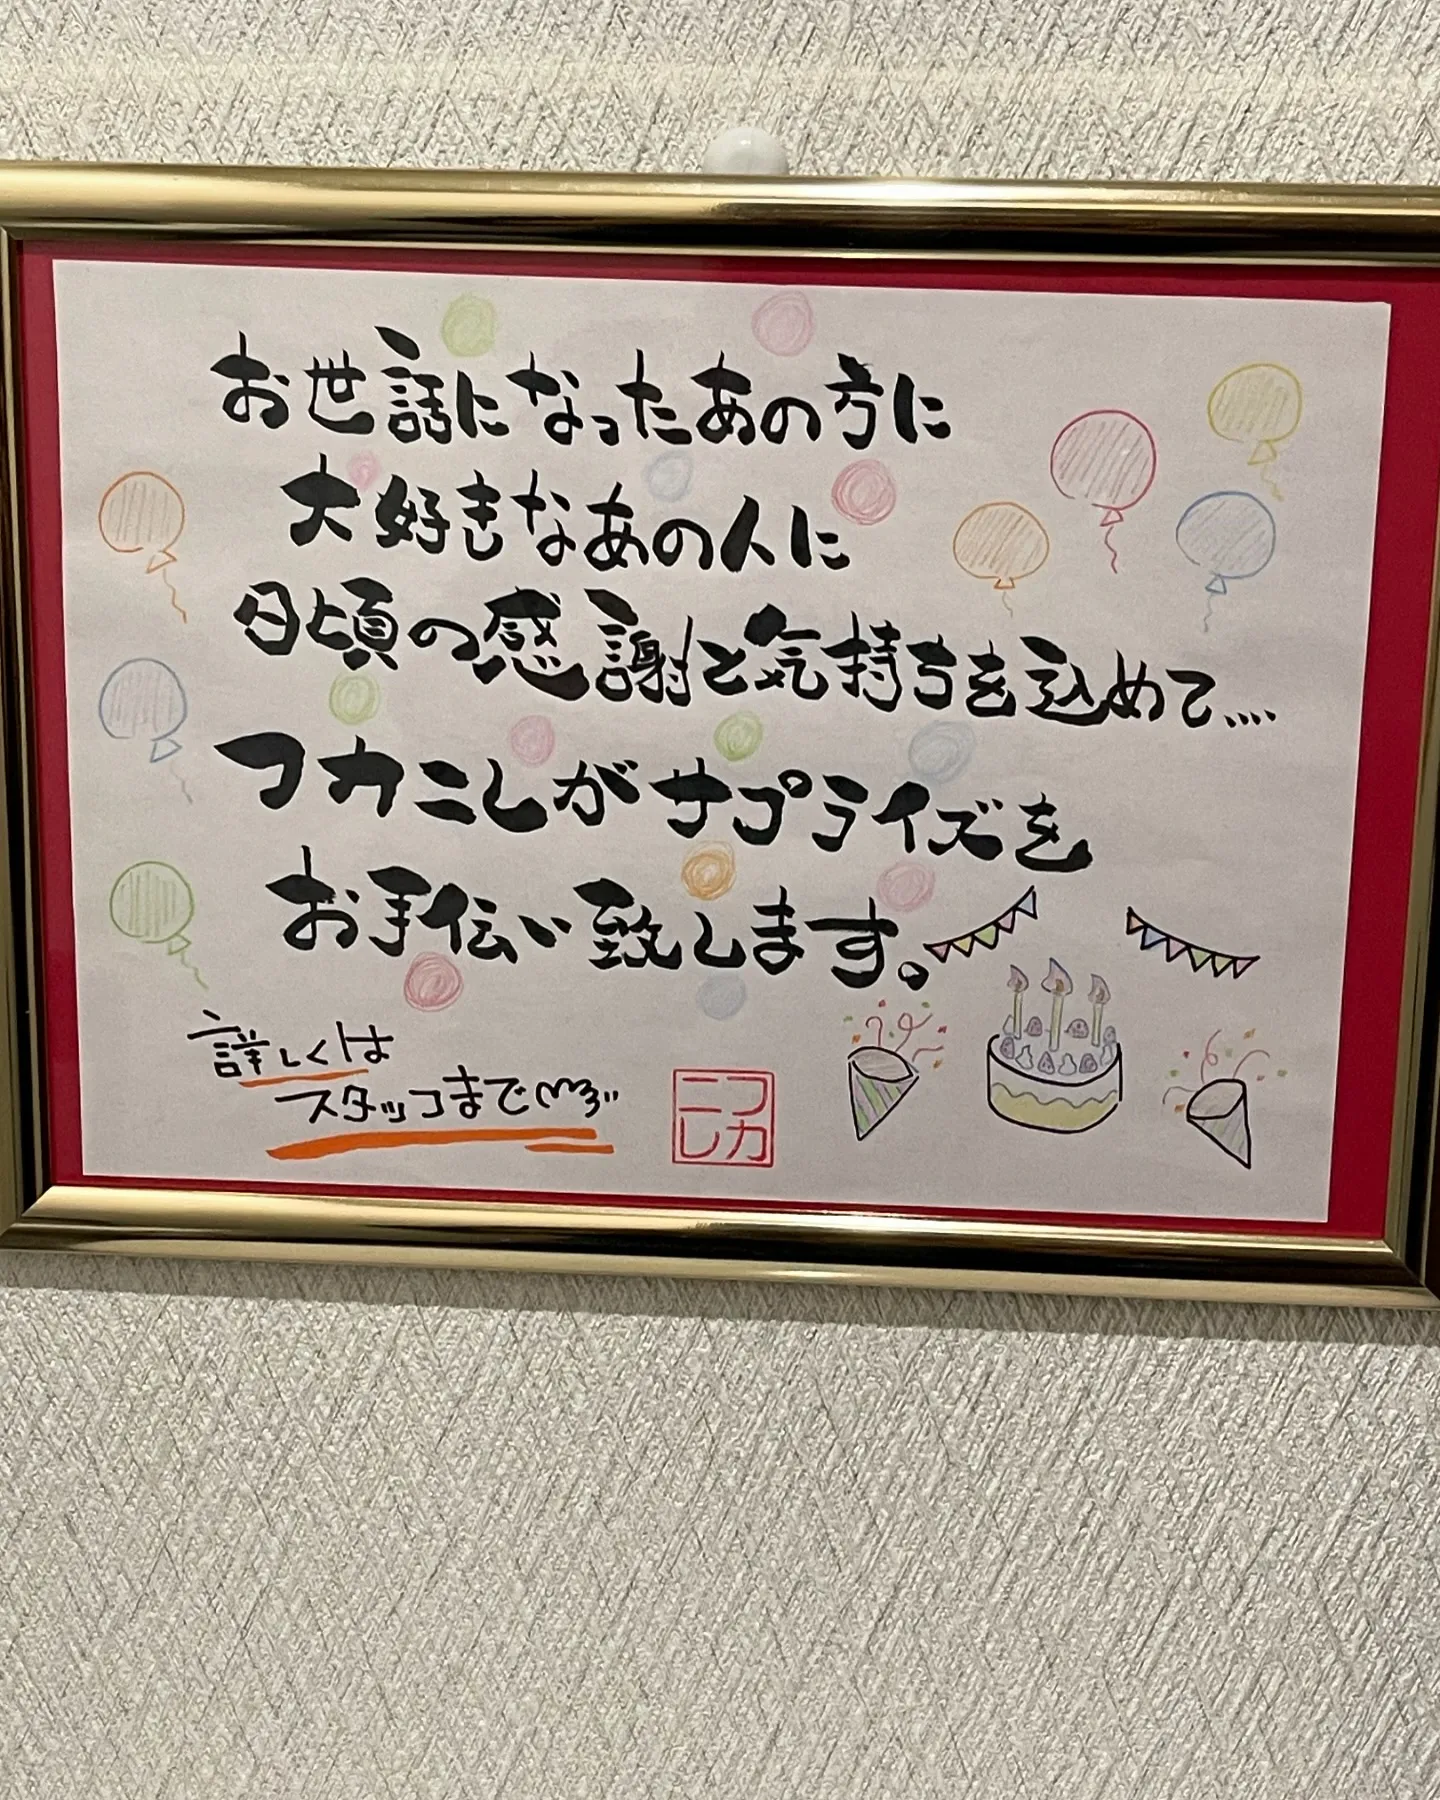 お世話になったあの方に
大好きなあの人に
日頃の感謝と気持ちを込めて....
フカニしがサプライズを
お手伝い致します。
詳しくは
スタッフまで
フカ
ニレ